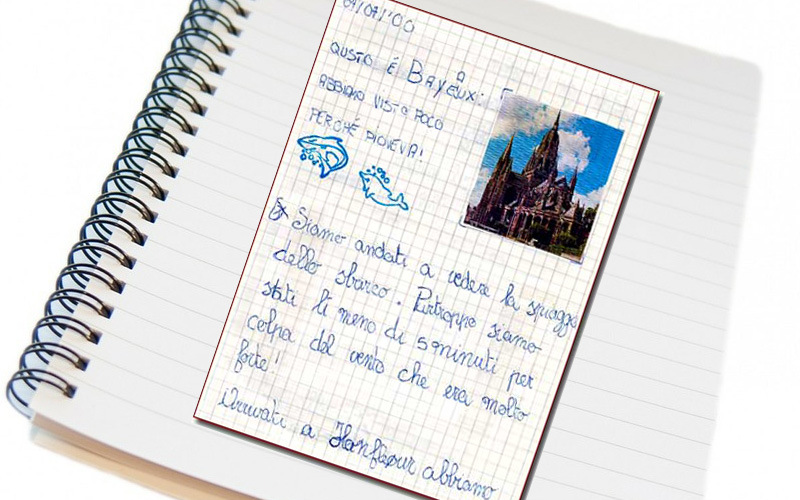 QUSTO É BAYEUX:
ABBIAMO VISTO POCO
PERCHÉ PIOVEVA!
Siamo andati a vedere la spiaggia
dello sbarco. Purtroppo siamo
stati lì meno di 5 minuti per
colpa del vento che era molto
forte!
Arrivati a Honfleur abbiamo